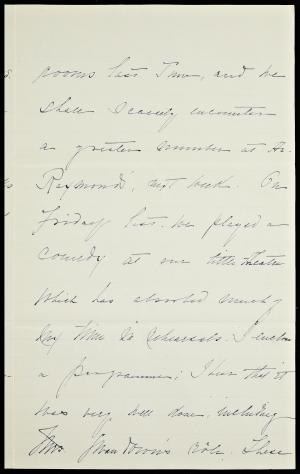 rooms last Tues, and we
shall scarcely encounter
a greater number at St.
Raymond's, next week. On
Friday last we played a
comedy at our little theatre
which has absorbed much of
my time in rehearsals. I enclose
a programme; I hear that it
was very well done, including
Mrs role. These